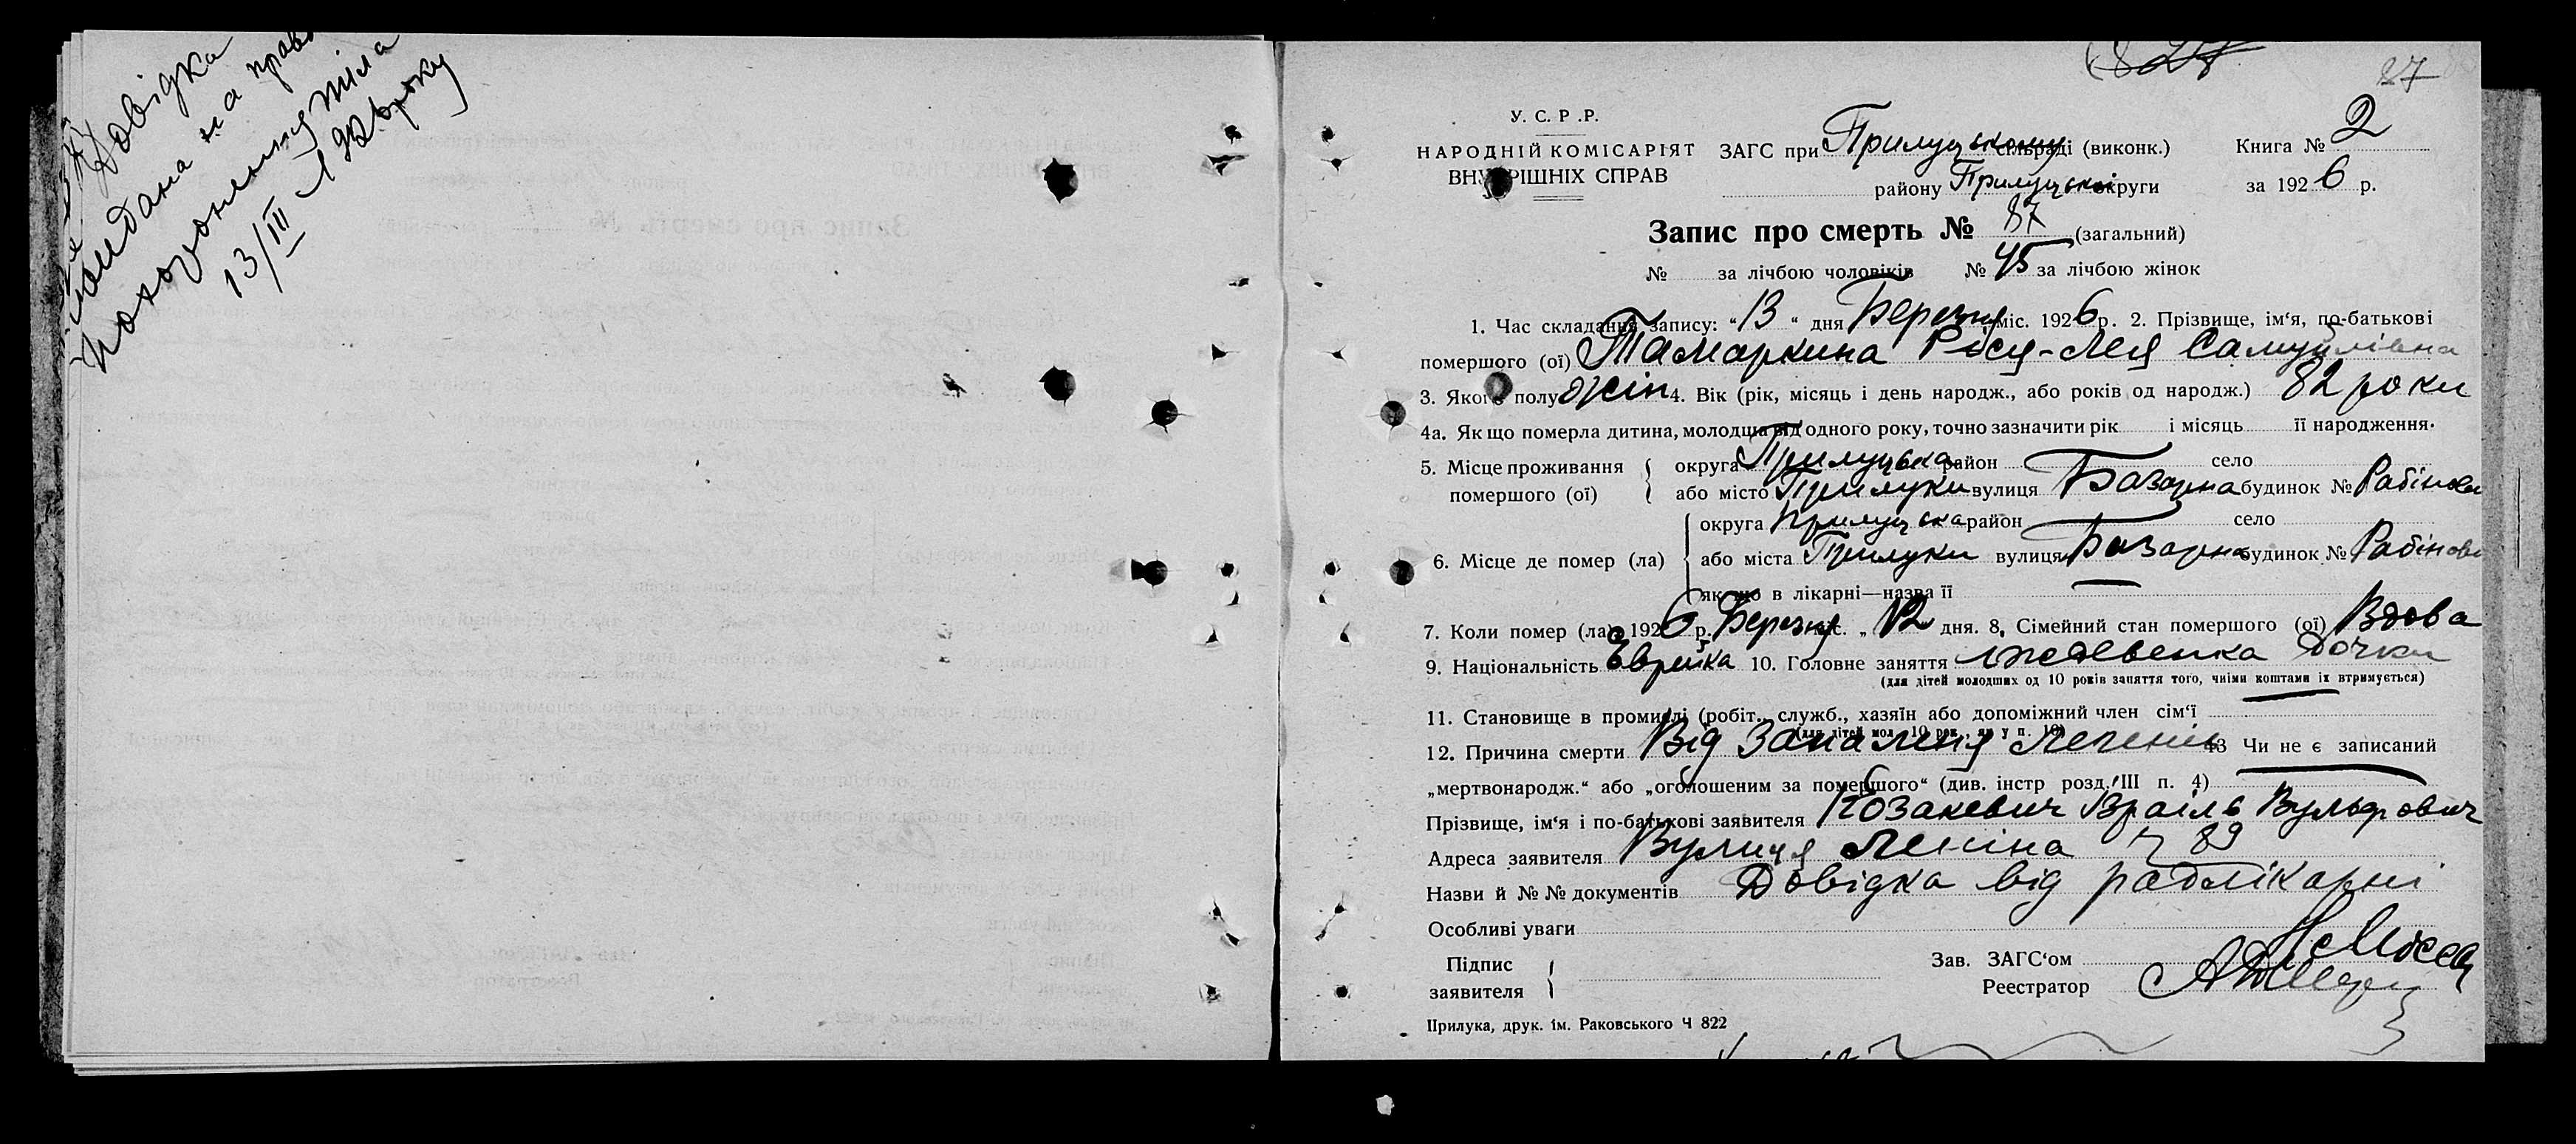 Довідка
видана на право
похоронення тіла
13/III
87
У. С. Р .Р.
НАРОДНІЙ КОМІСАРІЯТ
ВНУТРІШНІХ СПРАВ
ЗАГС при Прилуцькому сільраді (виконк.) Книга № 2
району Прилуцької округи за 1926 р.
Запис про смерть № 87 (загальний)
№ за лічбою чоловіків № 45 за лічбою жінок
1. Час складання запису: “13“ дня Березня міс. 1926 р. 2. Прізвище, ім‘я, по-батькові
помершого (ої) Тамаркина Рися-Лея Самуйлівна
3. Якого полу жін 4. Вік (рік, місяць і день народж., або років од народж.) 82 роки
4а. Як що померла дитина, молодша від одного року, точно зазначити рік і місяць її народження.
5. Місце проживання помершого (ої) округа Прилуцька район село
або місто Прилуки вулиця Базарна будинок №
6. Місце де помер (ла) округа Прилуцька район село
або міста Прилуки вулиця Базарна будинок №
як що в лікарні—назва її —
7. Коли помер (ла) 1926 р. Березня міс. „12 дня. 8. Сімейний стан помершого (ої) Вдова
9. Національність Еврейка 10. Головне заняття іждевенка дочки
(для дітей молодших од 10 років заняття того, чиїми коштами їх втримується)
11. Становище в промислі (робіт., служб., хазяїн або допоміжний член сім‘ї —
(для дітей мол. 10 рок., як у п. 10)
12. Причина смерти Від Запаленя Легенів 13 Чи не є записаний
„мертвонародж.“ або „оголошеним за помершого“ (див. інстр розд. III п. 4) —
Прізвище, ім‘я і по-батькові заявителя Козакевич Ізраіль Вульфович
Адреса заявителя Вулиця Леніна № 89
Назви й №№ документів Довідка від радлікарні
Особливі уваги
Підпис заявителя
Зав. ЗАГС‘ом
Реестратор
Прилука, друк. ім. Раковського Ч 822